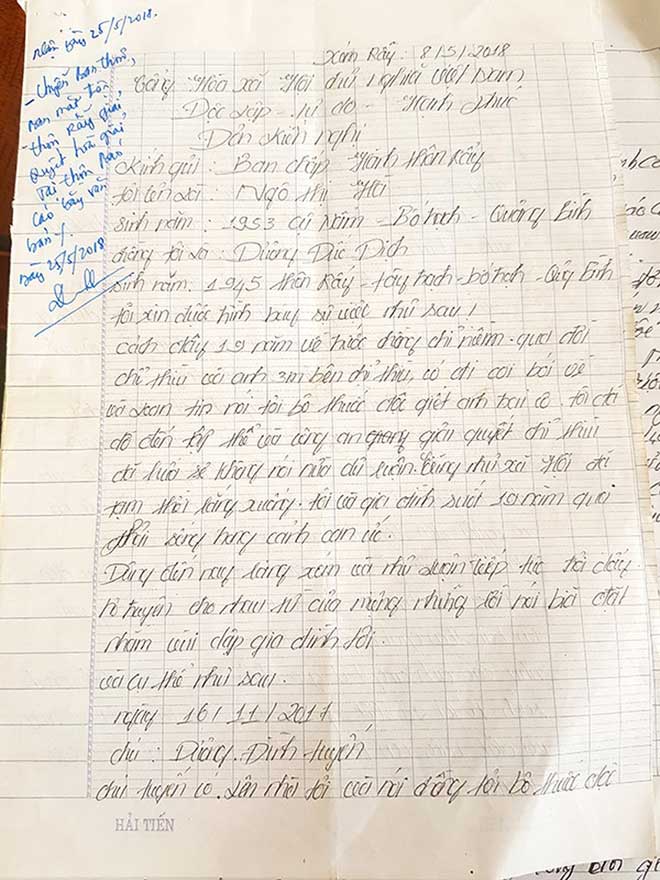 Nhận ngày 25/5/2018.
- Chuyển Ban thôn,
Ban mặt trận
- thôn Rẫy giải
quyết hòa giải
tại thôn báo
cáo bằng văn
bản /.
ngày 25/5/2018
Xóm Rẫy: 8/5/2018
Cộng Hòa xã Hội chủ nghĩa việt Nam
Độc lập - tự do - Hạnh phúc
Đơn kiến nghị
Kính gửi: Ban chấp Hành thôn Rẫy
tôi tên là: Ngô thị Hà
sinh năm: 1953 cự Nẫm - Bố trạch - Quảng Bình
chồng tôi là: Dương Đức Dích
sinh năm: 1945 thôn Rẫy - tây trạch - bố trạch - Quảng Bình
tôi xin được trình bày sự việc như sau:
cách đây 19 năm về trước chồng chị niềm qua đời
chị thiu và anh em bên chị thiu, có đi coi bói về
và loan tin nói tôi bỏ thuốc độc giết anh trai cô. tôi đã
đã đến tập thể và công an giải quyết chị thiu
đã hứa sẽ không nói nữa dư luận cũng như xã Hội đã
tạm thời lắng xuống. tôi và gia đình suốt 19 năm qua
phải sống trong cảnh oan ức.
đến nay làng xóm và như luận tiếp tục
truyền cho nhau những lời nói bịa đặt
nhằm vùi dập gia đình tôi.
và cụ thể như sau.
ngày 16/11/2017
chú: Dương Đình tuyến
chú tuyến có lên nhà tôi và nói chồng tôi bỏ thuốc độc
HẢI TIẾN